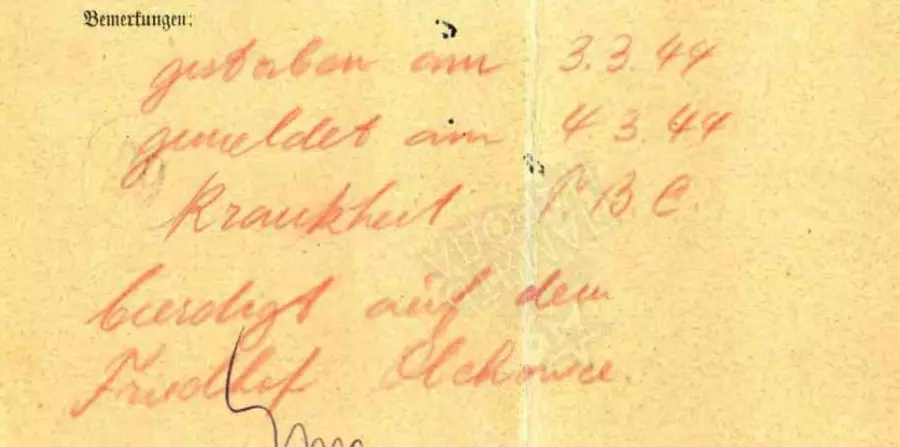 Bemerkungen:
gestorben am 3.3.44
gemeldet am 4.3.44
Krankheit T.B.C.
beerdigt auf dem
Friedhof Olchowce